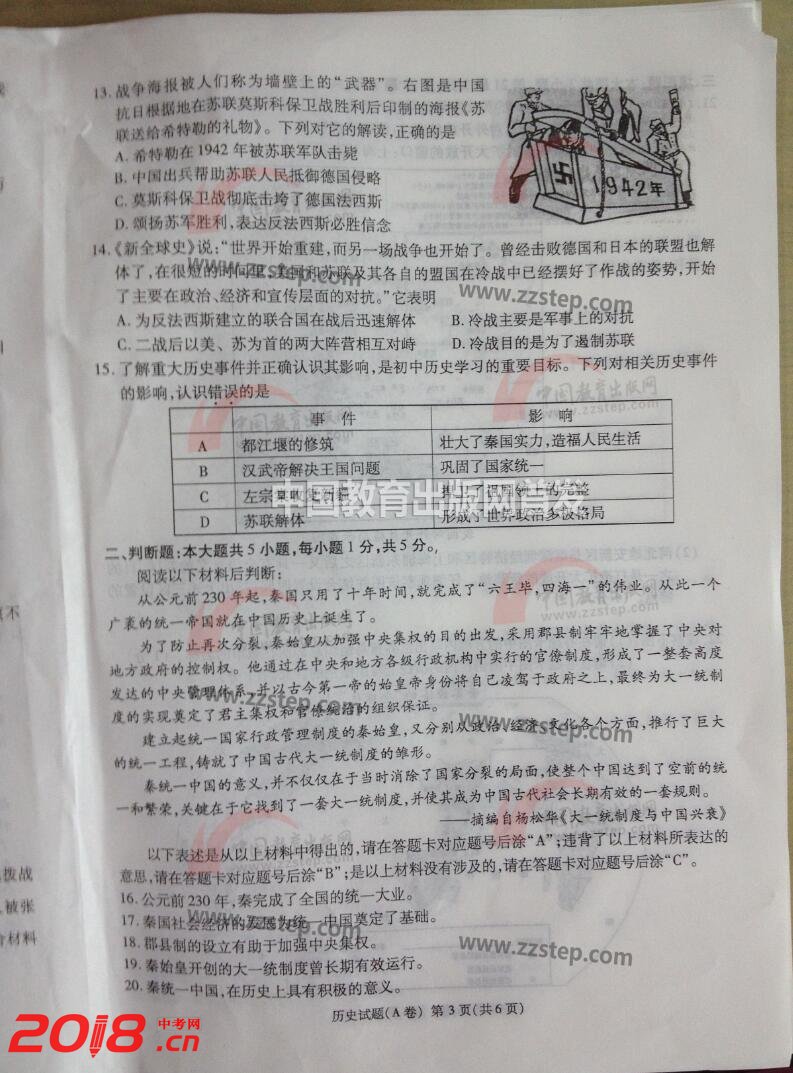 13. 战争海报被人们称为墙壁上的“武器”。右图是中国
抗日根据地在苏联莫斯科保卫战胜利后印制的海报《苏
联送给希特勒的礼物》。下列对它的解读,正确的是
A. 希特勒在1942年被苏联军队击毙
B. 中国出兵帮助苏联人民抵御德国侵略
C. 莫斯科保卫战彻底击垮了德国法西斯
D. 颂扬苏军胜利,表达反法西斯必胜信念
1942年
14.《新全球史》说:“世界开始重建,而另一场战争也开始了。曾经击败德国和日本的联盟也解
体了,在很短的时间里,美国和苏联及其各自的盟国在冷战中已经摆好了作战的姿势,开始
了主要在政治、经济和宣传层面的对抗。”它表明
A. 为反法西斯建立的联合国在战后迅速解体 B. 冷战主要是军事上的对抗
C. 二战后以美、苏为首的两大阵营相互对峙 D. 冷战目的是为了遏制苏联
15. 了解重大历史事件并正确认识其影响,是初中历史学习的重要目标。下列对相关历史事件
的影响,认识错误的是
事 件 影 响
A 都江堰的修筑 壮大了秦国实力,造福人民生活
B 汉武帝解决王国问题 巩固了国家统一
C 左宗棠收复新疆 的完整
D 苏联解体 形成了世界政治多极格局
二、判断题:本大题共5小题,每小题1分,共5分。
阅读以下材料后判断:
从公元前230年起,秦国只用了十年时间,就完成了“六王毕,四海一”的伟业。从此一个
广袤的统一帝国就在中国历史上诞生了。
为了防止再次分裂,秦始皇从加强中央集权的目的出发,采用郡县制牢牢地掌握了中央对
地方政府的控制权。他通过在中央和地方各级行政机构中实行的官僚制度,形成了一整套高度
发达的中央管理体系,并以古今第一帝的始皇帝身份将自己凌驾于政府之上,最终为大一统制
度的实现奠定了君主集权和官僚统治的组织保证。
建立起统一国家行政管理制度的秦始皇,又分别从政治、经济、文化各个方面,推行了巨大
的统一工程,铸就了中国古代大一统制度的雏形。
秦统一中国的意义,并不仅仅在于当时消除了国家分裂的局面,使整个中国达到了空前的统
一和繁荣,关键在于它找到了一套大一统制度,并使其成为中国古代社会长期有效的一套规则。
——摘编自杨松华《大一统制度与中国兴衰》
以下表述是从以上材料中得出的,请在答题卡对应题号后涂“A”;违背了以上材料所表达的
意思,请在答题卡对应题号后涂“B”;是以上材料没有涉及的,请在答题卡对应题号后涂“C”。
16. 公元前230年,秦完成了全国的统一大业。
17. 秦国社会经济的发展为统一中国奠定了基础。
18. 郡县制的设立有助于加强中央集权。
19. 秦始皇开创的大一统制度曾长期有效运行。
20. 秦统一中国,在历史上具有积极的意义。
历史试题(A卷) 第3页(共6页)
拨战
被张
材料
中国教育出版网首发
中国教育出版网
www.zzstep.com
2018.cn
中考网